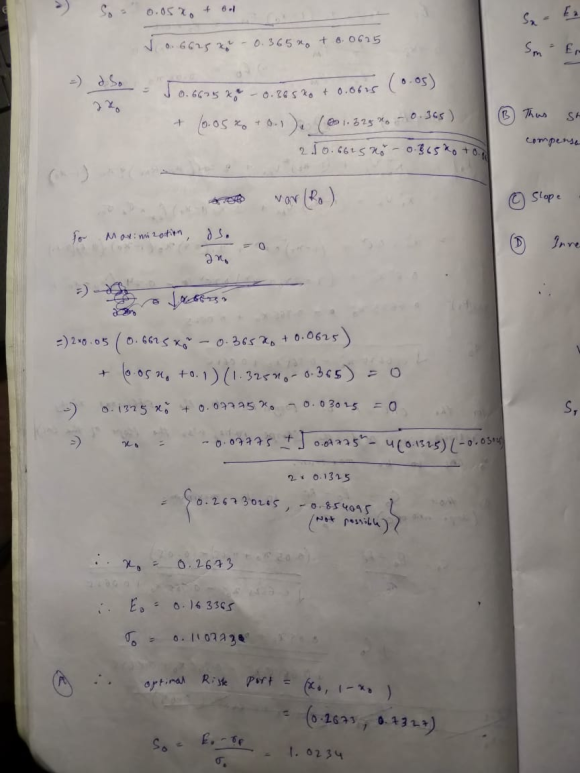 S₀ = 0.05x₀ + 0.1
√0.6625x₀² - 0.365x₀ + 0.0625
=) ∂S₀/∂x₀ = √0.6625x₀² - 0.365x₀ + 0.0625 (0.05)
+ (0.05x₀ + 0.1) × (1.325x₀ - 0.365)
2√0.6625x₀² - 0.365x₀ + 0.
var(R₀)
For Maximization, ∂S₀/∂x₀ = 0
=)
=) 2×0.05 (0.6625x₀² - 0.365x₀ + 0.0625)
+ (0.05x₀ + 0.1)(1.325x₀ - 0.365) = 0
=) 0.1325x₀² + 0.07775x₀ - 0.03025 = 0
=) x₀ = -0.07775 ± √0.07775² - 4(0.1325)(-0.030
2 * 0.1325
= { 0.26730205, -0.854095 }
(Not possible)
∴ x₀ = 0.2673
∴ E₀ = 0.163365
σ₀ = 0.110773
(A) ∴ optimal Risk port = (x₀, 1-x₀)
= (0.2673, 0.7327)
S₀ = E₀ - r_f / σ₀ = 1.0234
S_x =
S_m =
(B) Thus
compens
(C) Slope
(D) Inve
∴